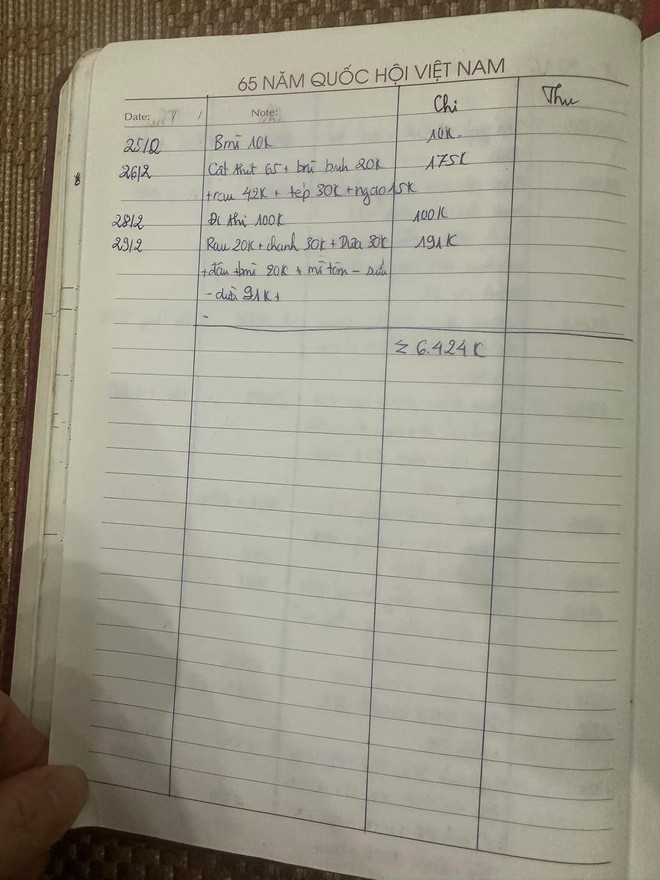 65 NĂM QUỐC HỘI VIỆT NAM
Date: / / Note: Chi Thu
25/2 Bmì 10k 10k.
26/2 Cắt thịt 65 + bmì bình 20k 175k
+ rau 42k + tép 30k + ngao 15k
28/2 Đi thi 100k 100k
29/2 Rau 20k + chanh 30k + Dứa 30k 191k
+ đậu + bmì 20k + mì tôm - sữa
- dưa 91k +
-
Σ 6.424k